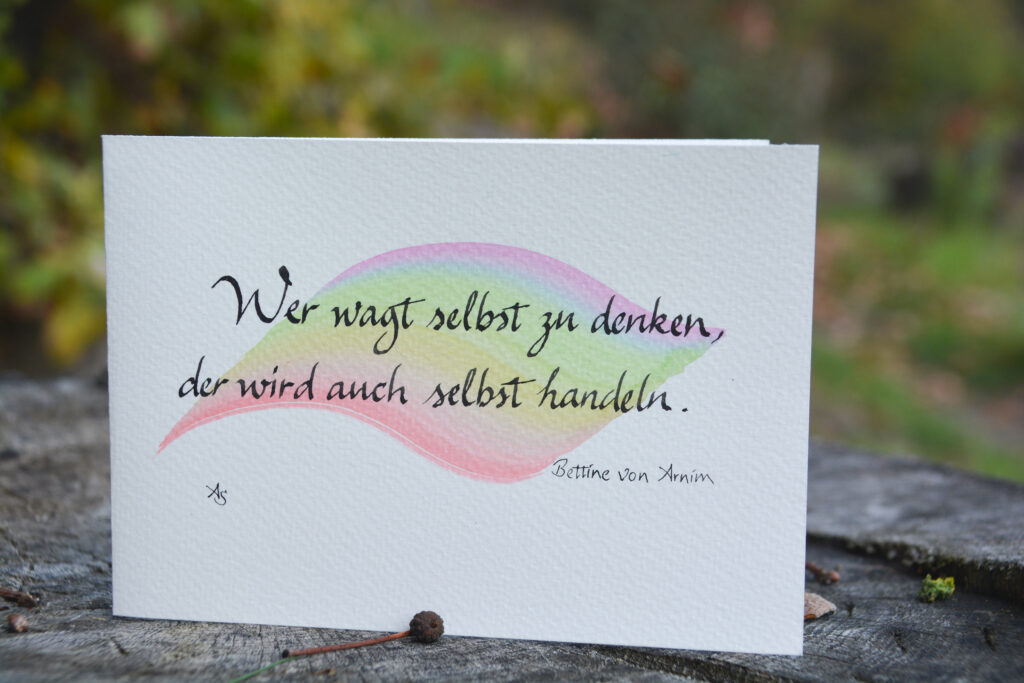 Wer wagt selbst zu denken,
der wird auch selbst handeln.
Bettine von Arnim
AS